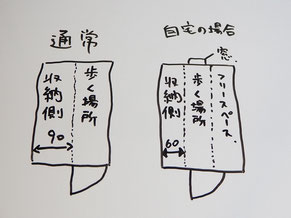 通常
収納側
90
歩く場所
自宅の場合
窓
収納側
60
歩く場所
フリースペース